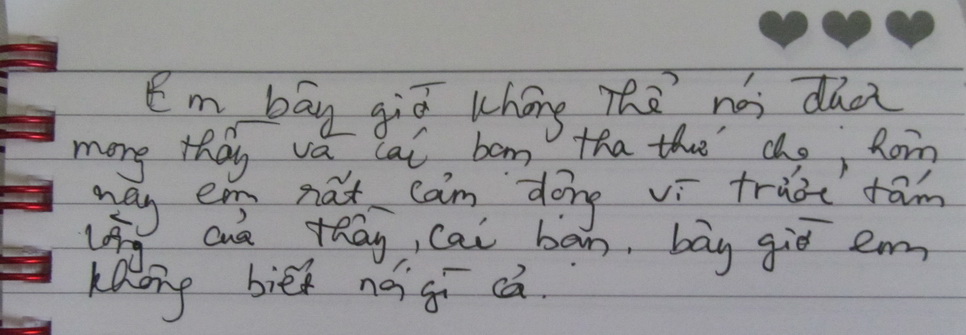 Em bây giờ không thể nói được
mong thầy và các bạn tha thứ cho, hôm
nay em rất cảm động vì trước tấm
lòng của thầy, các bạn. bây giờ em
không biết nói gì cả.